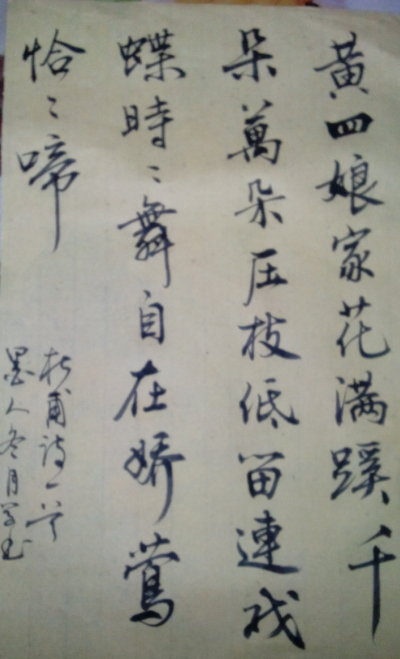 黄四娘家花满蹊千
朵萬朵压枝低留連戏
蝶時〻舞自在娇鶯
恰〻啼
杜甫诗一首
墨人冬月